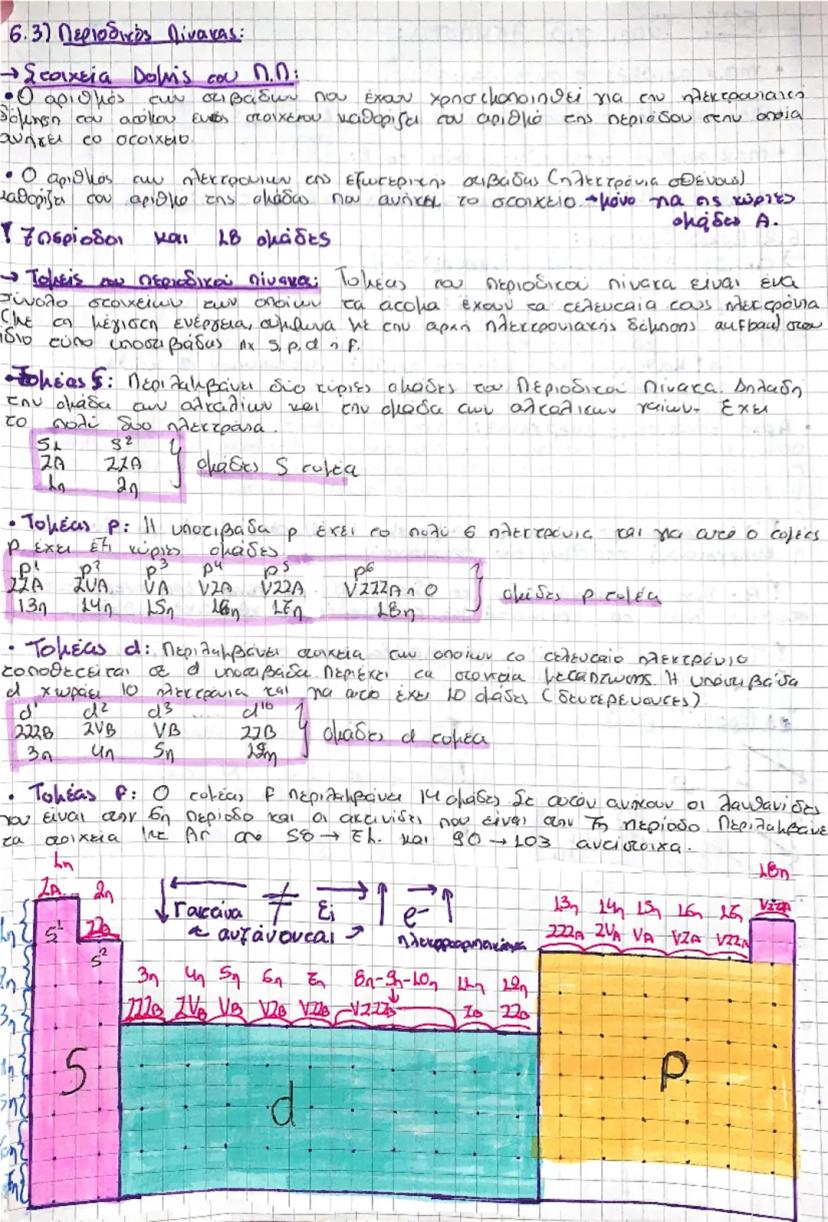 6.3) Περιοδικός Πίνακας:
→ Στοιχεία Δομής του Π.Π:
• Ο αριθμός των στιβάδων που έχουν χρησιμοποιηθεί για την ηλεκτρονιακή
δόμηση του ατόμου ενός στοιχείου καθορίζει τον αριθμό της περιόδου στην οποία
ανήκει το στοιχείο.
• Ο αριθμός των ηλεκτρονίων της εξωτερικής στιβάδας (ηλεκτρόνια σθένους)
καθορίζει τον αριθμό της ομάδας που ανήκει το στοιχείο → μόνο για τις κύριες
ομάδες Α.
! 7 περίοδοι και 18 ομάδες
→ Τομείς του περιοδικού πίνακα: Τομέας του περιοδικού πίνακα είναι ένα
σύνολο στοιχείων των οποίων τα άτομα έχουν τα τελευταία τους ηλεκτρόνια
(με τη μέγιστη ενέργεια, σύμφωνα με την αρχή ηλεκτρονιακής δόμησης aufbau) στον
ίδιο τύπο υποστιβάδας πχ s, p, d ή f.
• Τομέας S: Περιλαμβάνει δύο κύριες ομάδες του Περιοδικού Πίνακα. Δηλαδή
την ομάδα των αλκαλίων και την ομάδα των αλκαλικών γαιών. Έχει
το πολύ δύο ηλεκτρόνια.
S1 S²
IA IIA } ομάδες S τομέα
1η 2η
• Τομέας p: Η υποστιβάδα p έχει το πολύ 6 ηλεκτρόνια και για αυτό ο τομέας
p έχει έξι κύριες ομάδες
p¹ p² p³ p⁴ p⁵ p⁶
IIIA IVA VA VIA VIIA VIIIA ή 0 } ομάδες p τομέα
13η 14η 15η 16η 17η 18η
• Τομέας d: Περιλαμβάνει στοιχεία των οποίων το τελευταίο ηλεκτρόνιο
τοποθετείται σε d υποστιβάδα. Περιέχει τα στοιχεία μετάπτωσης. Η υποστιβάδα
d χωράει 10 ηλεκτρόνια και για αυτό έχει 10 ομάδες (δευτερεύουσες)
d¹ d² d³ ... d¹⁰
IIIB IVB VB IIB } ομάδες d τομέα
3η 4η 5η 12η
• Τομέας f: Ο τομέας f περιλαμβάνει 14 ομάδες. Σε αυτόν ανήκουν οι λανθανίδες
που είναι στην 6η περίοδο και οι ακτινίδες που είναι στην 7η περίοδο. Περιλαμβάνει
τα στοιχεία με Ar από 58 → 71. και 90 → 103 αντίστοιχα.
1η 18η
IA 2η VIIIA
← ≠ → ↑ → ↑
↓ Ei e-
← αυξάνονται →
13η 14η 15η 16η 17η
IIIA IVA VA VIA VIIA
1η S¹ IIA
S²
3η 4η 5η 6η 7η 8η-9η-10η 11η 12η
IIIB IVB VB VIB VIIB VIIIB IB IIB
2η
3η
4η
5η
6η
7η
S d p